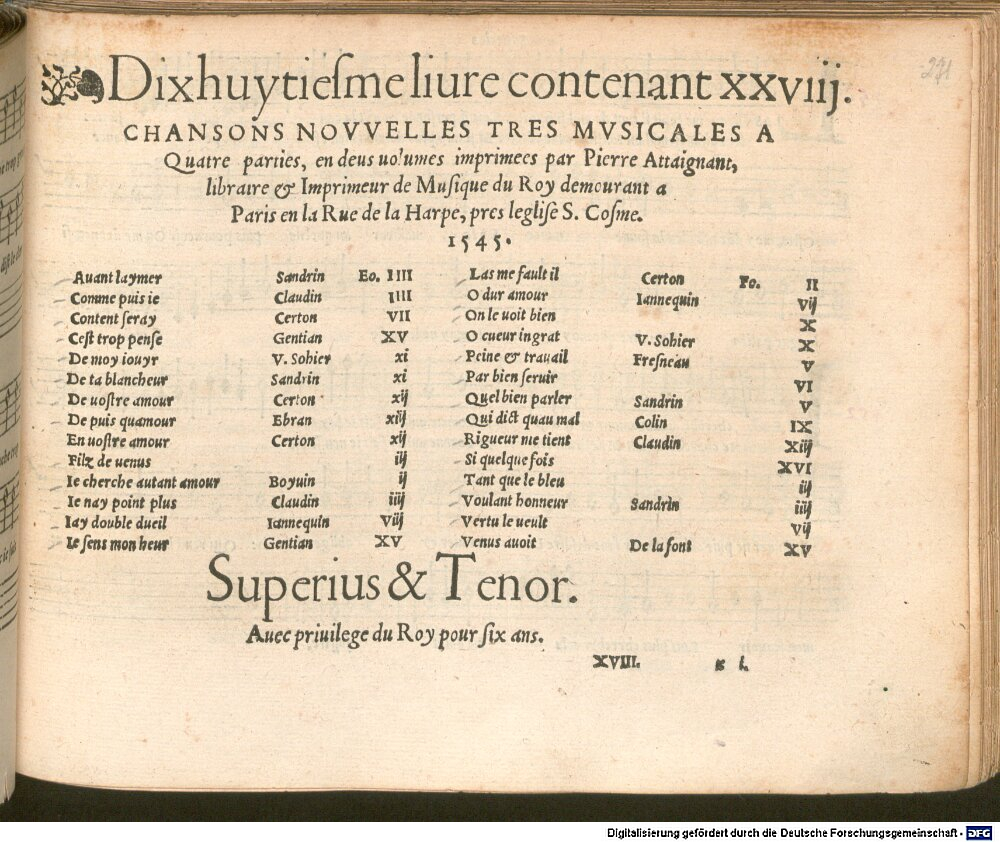 Dixhuytiesme liure contenant xxviij.
CHANSONS NOVVELLES TRES MVSICALES A
Quatre parties, en deus uolumes imprimees par Pierre Attaignant,
libraire & Imprimeur de Musique du Roy demourant a
Paris en la Rue de la Harpe, pres leglise S. Cosme.
1545.
Auant laymer Sandrin Fo. IIII
Comme puis ie Claudin IIII
Content seray Certon VII
Cest trop pense Gentian XV
De moy iouyr V. Sohier xi
De ta blancheur Sandrin xi
De uostre amour Certon xij
De puis quamour Ebran xiij
En uostre amour Certon xij
Filz de uenus iij
Ie cherche autant amour Boyuin ij
Ie nay point plus Claudin iiij
Iay double dueil Iannequin Viij
Ie sens mon heur Gentian XV
Las me fault il Certon Fo. II
O dur amour Iannequin Vij
On le uoit bien X
O cueur ingrat V. Sohier X
Peine & trauail Fresneau V
Par bien seruir VI
Quel bien parler Sandrin V
Qui dict quau mal Colin IX
Rigueur me tient Claudin Xiij
Si quelque fois XVI
Tant que le bleu ij
Voulant honneur Sandrin iiij
Vertu le ueult Vij
Venus auoit De la font XV
Superius & Tenor.
Auec priuilege du Roy pour six ans.
XVIII. g i.
Digitalisierung gefördert durch die Deutsche Forschungsgemeinschaft - DFG